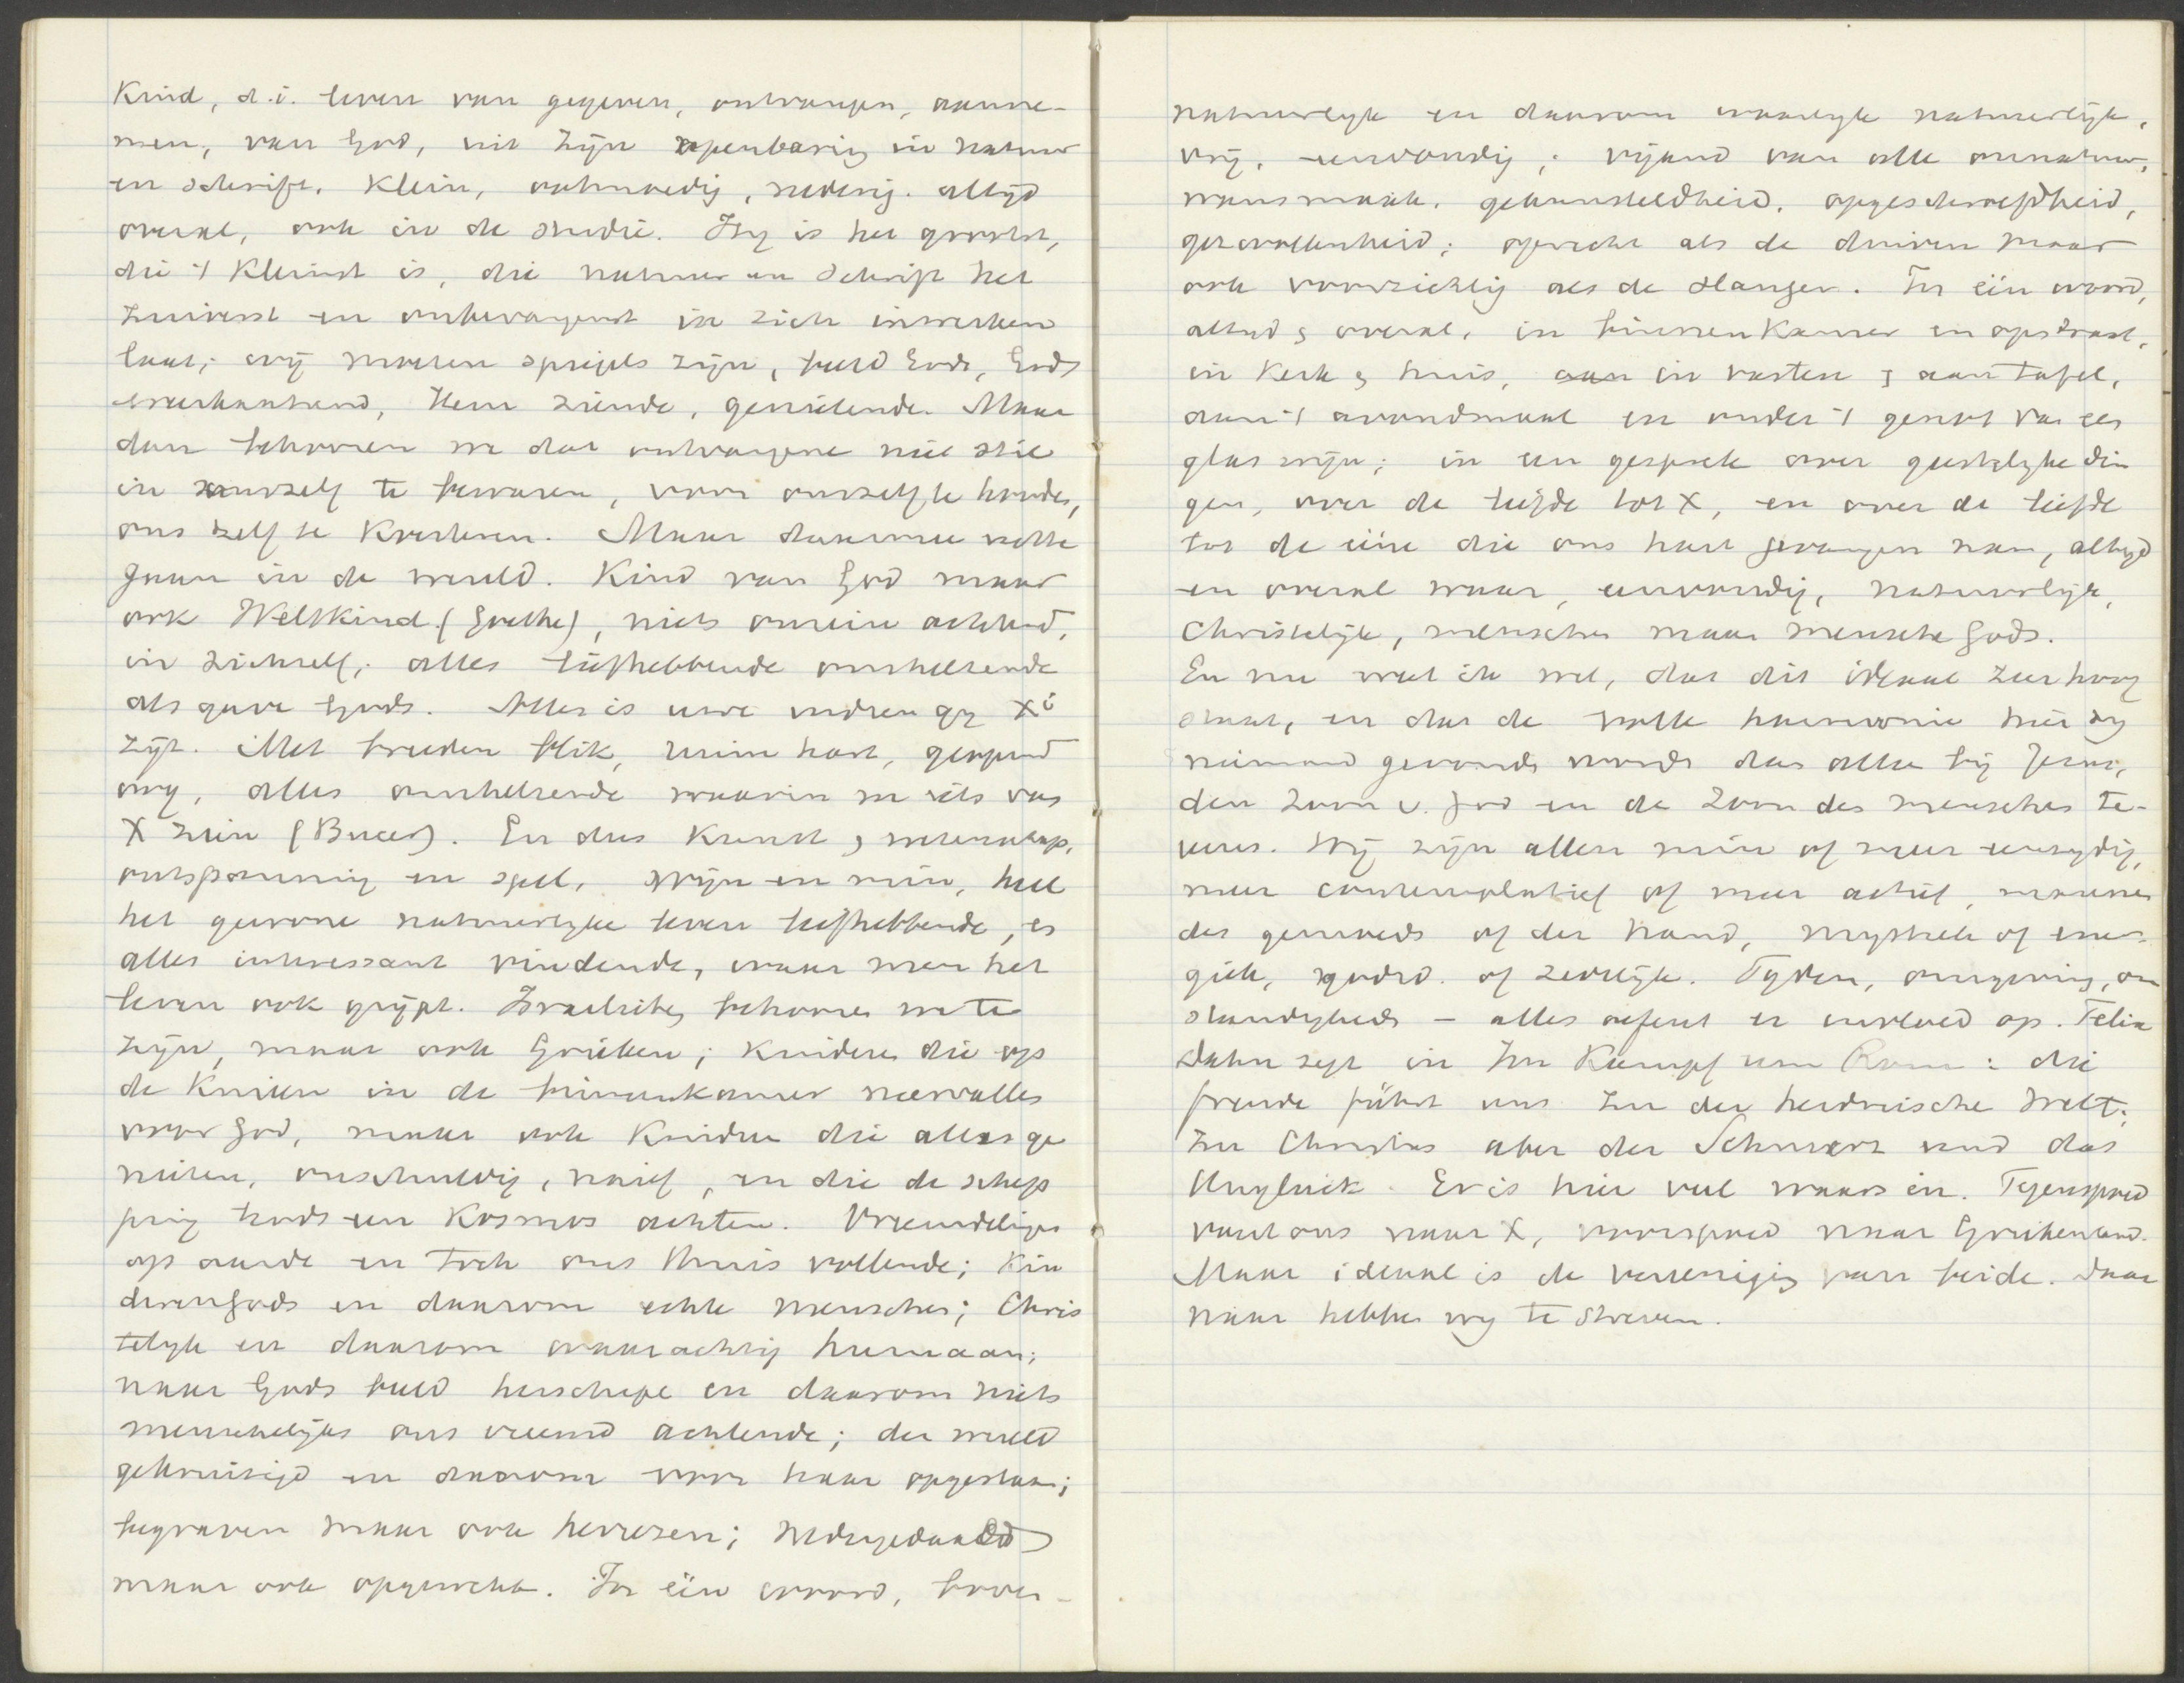 Kind, d.i. leven van gegeven, ontvangen, aanne-
men, van God, uit zijn openbaring in natuur
en schrift. Klein, ootmoedig, nederig. altijd
overal, ook in de studie. Hij is het grootst,
die 't kleinst is, die natuur en schrift het
zuiverst en onbevangenst in zich inwerken
laat; wij moeten spiegels zijn, beeld Gods, Gods
verwantschap, Hem ziende, genietende. Maar
dan behooren we dat ontvangene niet stil
in onszelf te bewaren, voor onszelf te houden,
ons zelf te koesteren. Maar daarmee
gaan in de wereld. Kind van God maar
ook Weltkind (Goethe), niets onrein achtend,
in zichzelf; alles liefhebbende omhelzende
als gave Gods. Alles is uwe indien gy X i
zijt. Met breeden blik, ruim hart, geopend
oog, alles omhelzende waarin we iets van
X zien (Bucer). En dus kunst & wetenschap,
ontspanning en spel, wijn en min, heel
het gewone natuurlyke leven liefhebbende, en
alles interessant vindende, waar men het
leven ook grijpt. Israelieten behooren we te
zijn, maar ook Grieken; kinderen die op
de knieen in de binnenkamer neervallen
voor God, maar ook kinderen die alles ge
nieten, onschuldig, naief, en die de schep
ping Gods een Kosmos achten. Vreemdelingen
op aarde en toch ons thuis voelende; Kin
deren Gods en daarom echte menschen; Chris
telyk en daarom waarachtig humaan;
naar Gods beeld herschape en daarom niets
menschelijks ons vreemd achtende; der wereld
gekruisigd en daarom voor haar opgestaan;
begraven maar ook herrezen; nedergedaald
maar ook opgewekt. In één woord, boven-
natuurlyk en daarom waarlyk natuurlijk,
vrij, eenvoudig; vijand van alle onnatuur,
wansmaak, gekunsteldheid, opgeschroefdheid,
gezwollenheid; oprecht als de duiven maar
ook voorzichtig als de slangen. In één woord,
altijd & overal, in binnenKamer en op straat,
in Kerk & huis, aan in vasten & aan tafel,
aan 't avondmaal en onder 't genot van een
glas wijn; in een gesprek over geestelyke din
gen, over de liefde tot X, en over de liefde
tot de eene die ons hart gevangen nam, altijd
en overal waar, eenvoudig, natuurlijk,
Christelijk, menschen maar mensche Gods.
En nu weet ik wel, dat dit ideaal zeer hoog
staat, en dat de volle harmonie hier by
niemand gevonden wordt dan alleen bij Jezus,
den Zoon v. God en de Zoon des menschen te-
vens. Wij zijn allen min of meer eenzydig,
meer contemplatief of meer actief, mannen
des gemoeds of der hand, mystiek of ener-
giek, godsd. of zedelijk. Tyden, omgeving, om
standigheden – alles oefent er invloed op. Felix
Dahn zegt in Im Kampf um Rom: die
freude führt uns zu der heidnische Welt;
zu Christus aber der Schmerz und das
Unglück. Er is hier veel waars in. Tegenspoed
voert ons naar X, voorspoed naar Griekenland.
Maar ideaal is de vereeniging van beide. Daar
naar hebben wy te streven.